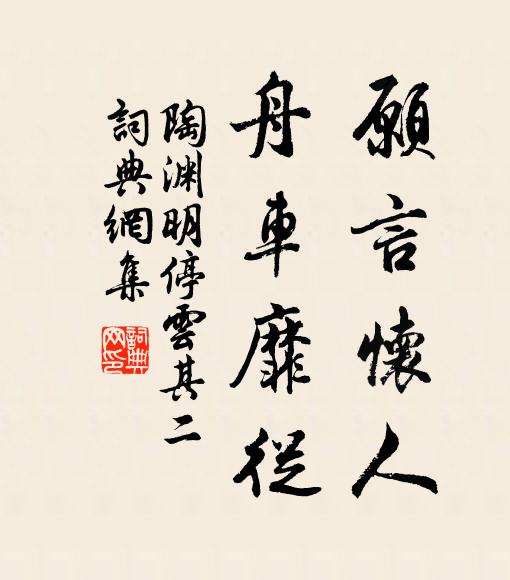 願言懷人
舟車靡從
陶渊明停雲其二
詞典網集
詞典
网印